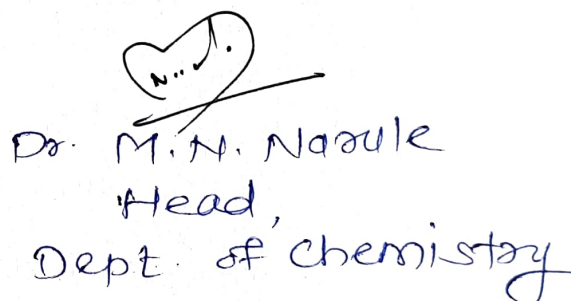 Dr. M.N. Narule
Head,
Dept. of chemistry